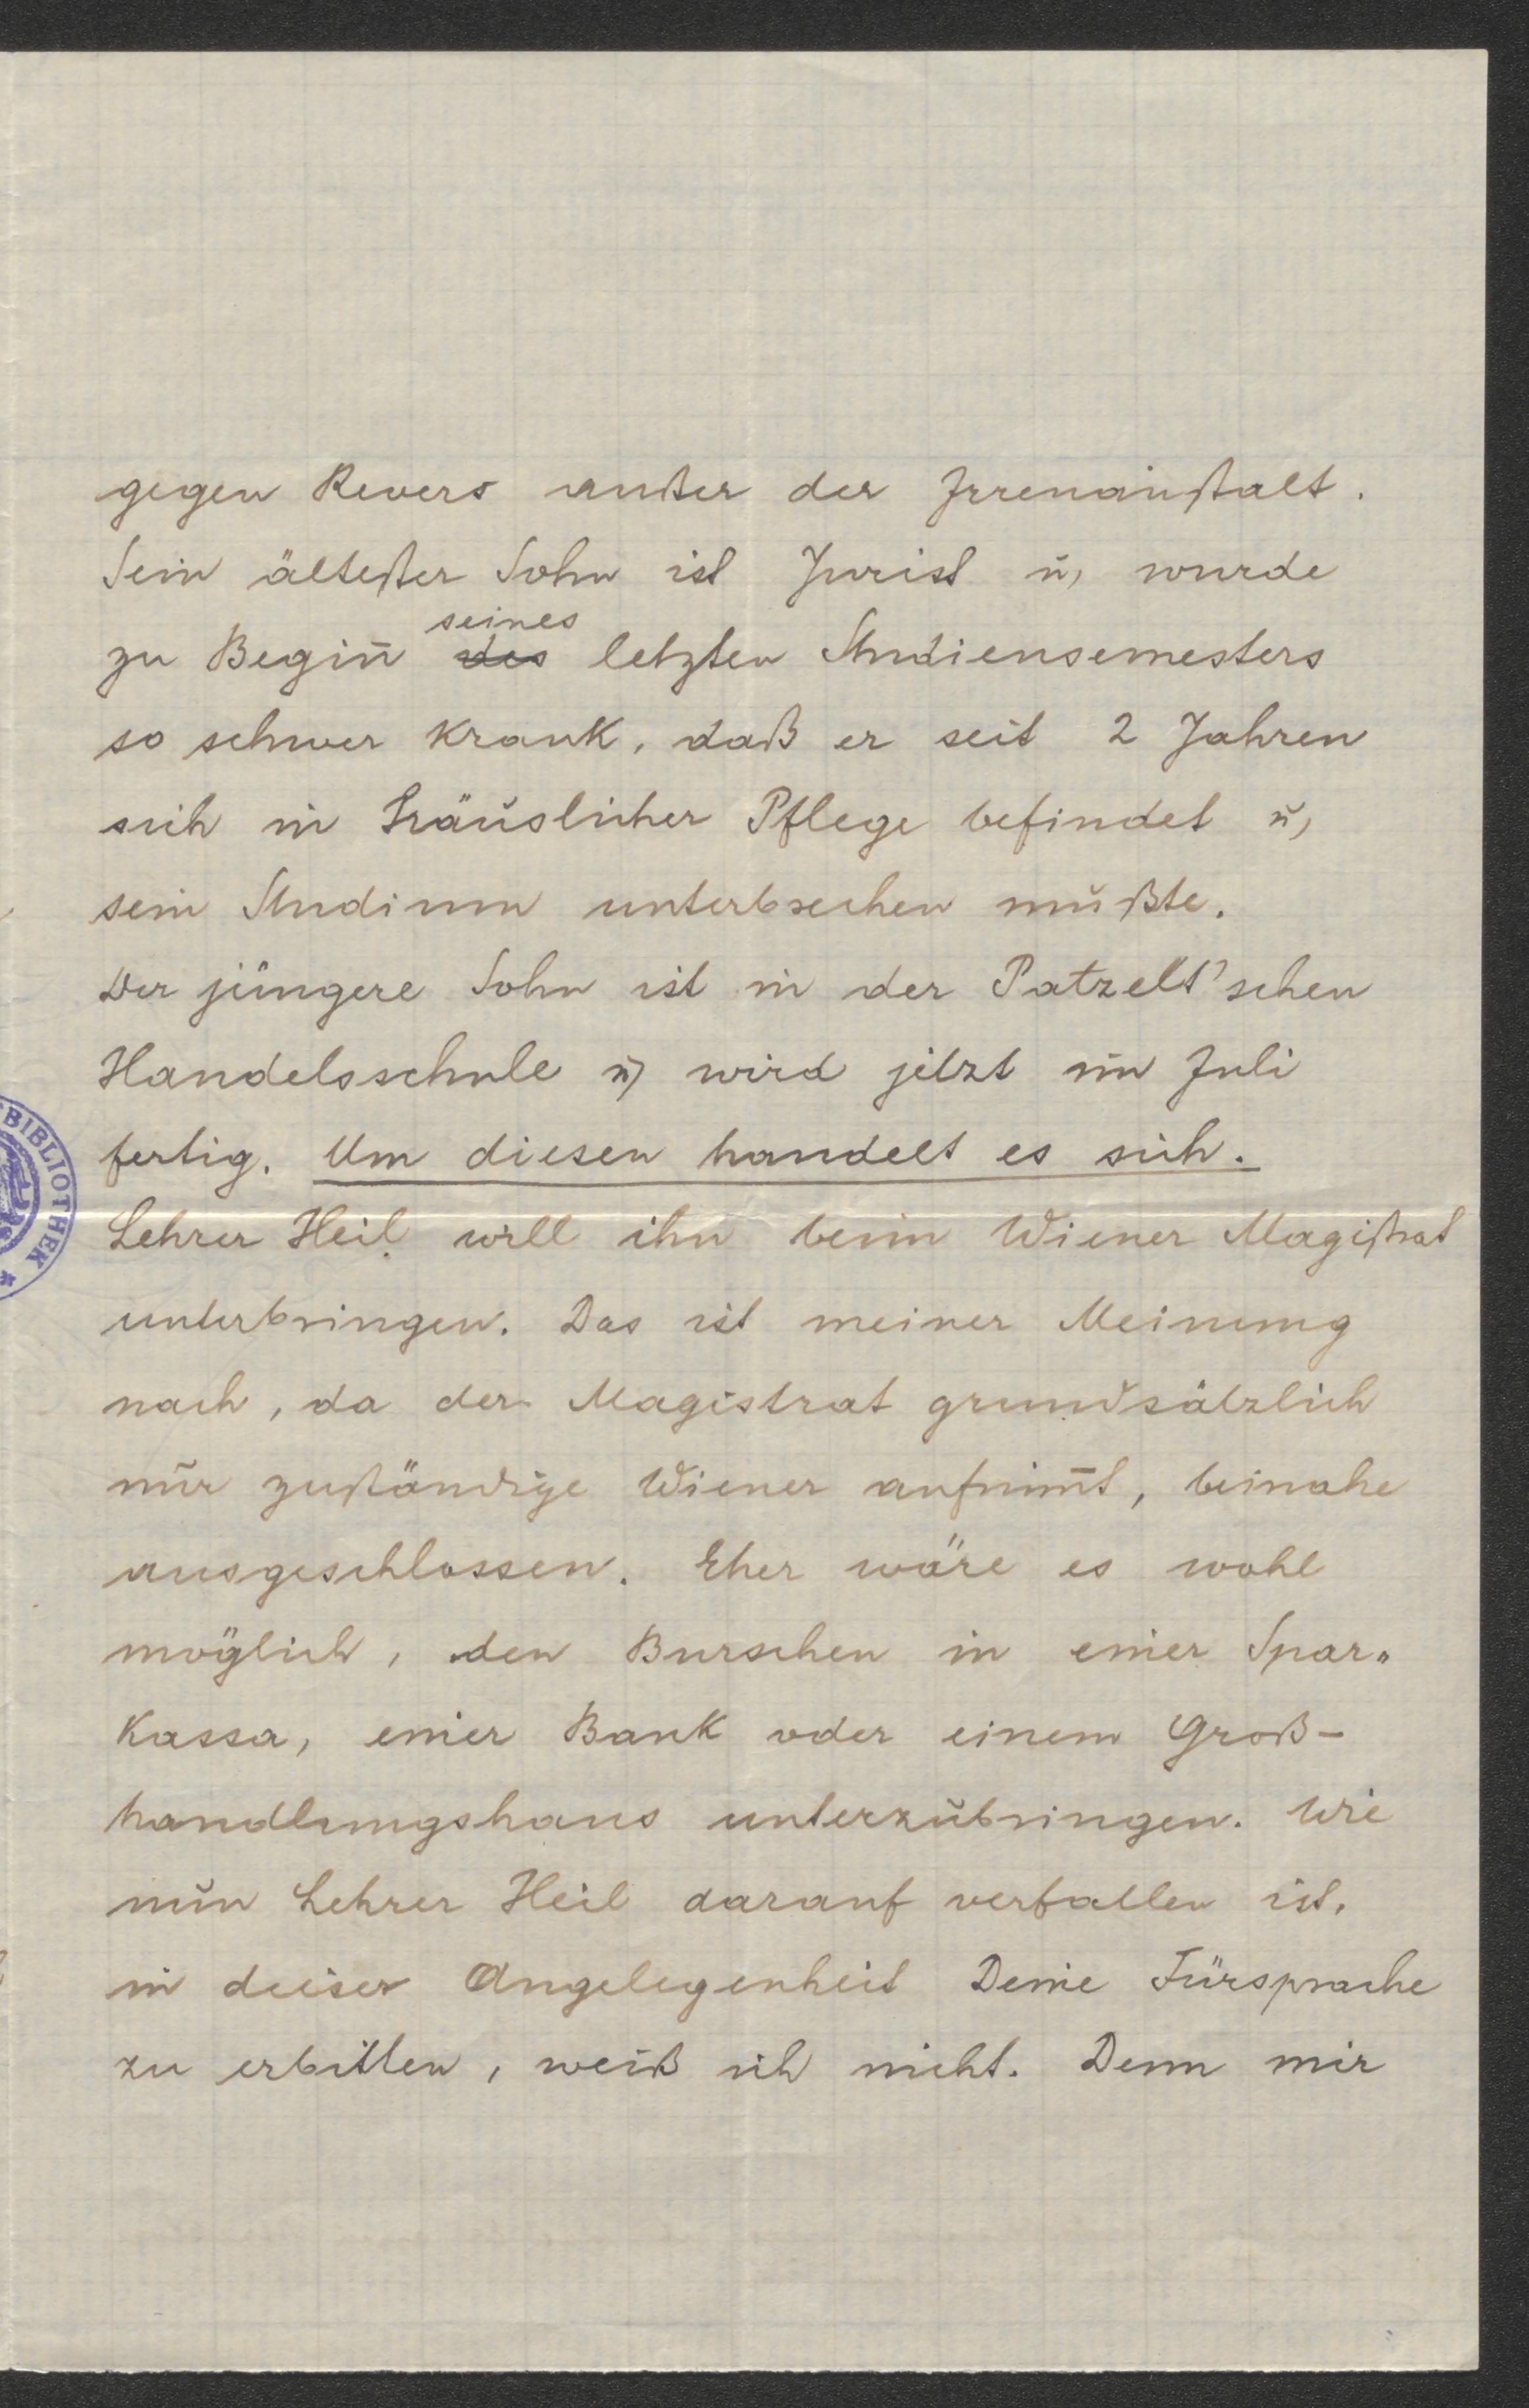 gegen Revers außer der Irrenanstalt.
Sein ältester Sohn ist Jurist u, wurde
seines
zu Begin̄ des letzten Studiensemesters
so schwer krank, daß er seit 2 Jahren
sich in häuslicher Pflege befindet u,
sein Studium unterbrechen mußte.
Der jüngere Sohn ist in der Patzelt'schen
Handelsschule u, wird jetzt im Juli
fertig. Um diesen handelt es sich.
BIBLIOTHEK *
Lehrer Heil will ihn beim Wiener Magistrat
unterbringen. Das ist meiner Meinung
nach, da der Magistrat grundsätzlich
nur zuständige Wiener aufnim̄t, beinahe
ausgeschlossen. Eher wäre es wohl
möglich, den Burschen in einer Spar„
Kassa, einer Bank oder einem Groß-
handlungshaus unterzubringen. Wie
nun Lehrer Heil darauf verfallen ist,
in dieser Angelegenheit Deine Fürsprache
zu erbitten, weiß ich nicht. Denn mir